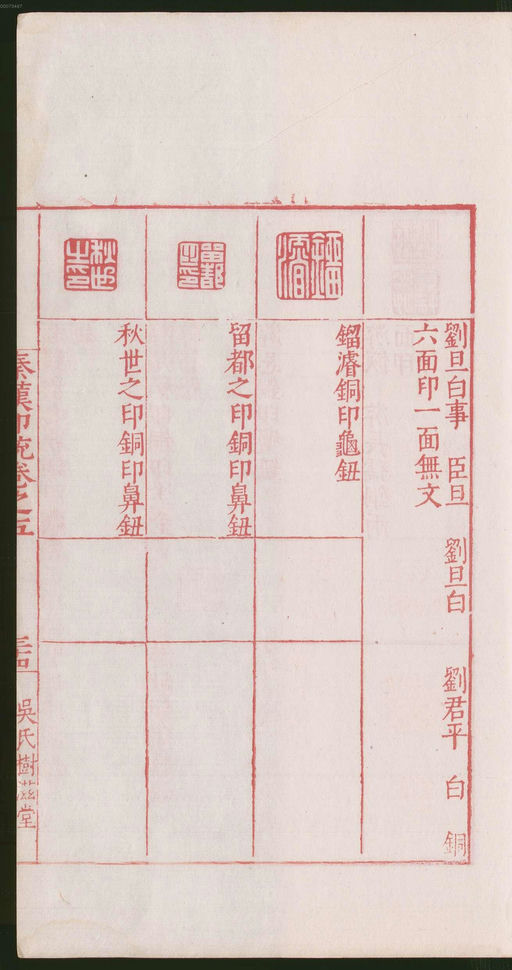 劉旦白事　臣旦　劉旦白　劉君平　白　銅
六面印一面無文
鎦濬銅印龜鈕
留都之印銅印鼻鈕
秋世之印銅印鼻鈕
秦漢印範卷之五
吳氏樹滋堂
00073447